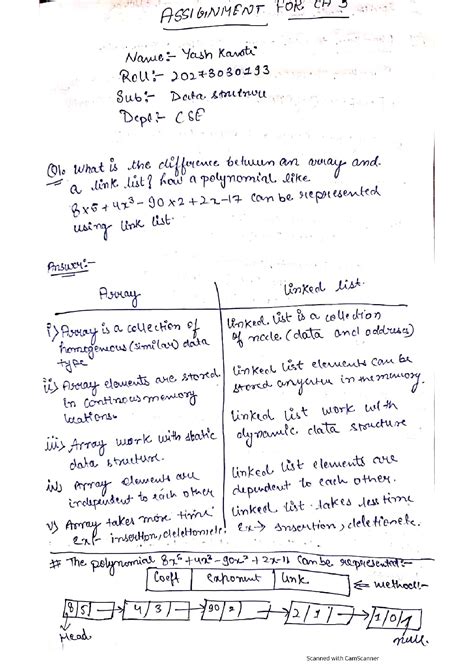 ASSIGINMENT FOR CH 3
Name:- Yash Karoti
Roll:- 20273030193
Sub:- Data structure
Dept:- CSE
Q1. What is the difference between an array and
a link list? how a polynomial like
8x5 + 4x3 - 90x2 + 2x - 17 can be represented
using link list.
Answer:-
Array
Linked list.
i) Array is a collection of
homogeneous (similar) data
type
linked list is a collection
of node (data and address)
ii) Array elements are stored
in continous memory
locations.
linked list elements can be
stored anywhere in the memory.
iii) Array work with static
data structure.
linked list work with
dynamic data structure
iv) Array elements are
independent to each other
linked list elements are
dependent to each other.
v) Array takes more time
ex:- insertion, deletion etc
linked list takes less time
ex → insertion, deletion etc.
# The polynomial 8x5 + 4x3 - 90x2 + 2x - 17 can be represented:-
Coeft | exponent | link
← method:-
8 | 5 | → 4 | 3 | → 90 | 2 | → 2 | 1 | → 1 | 0 |
Head
null.
Scanned with CamScanner